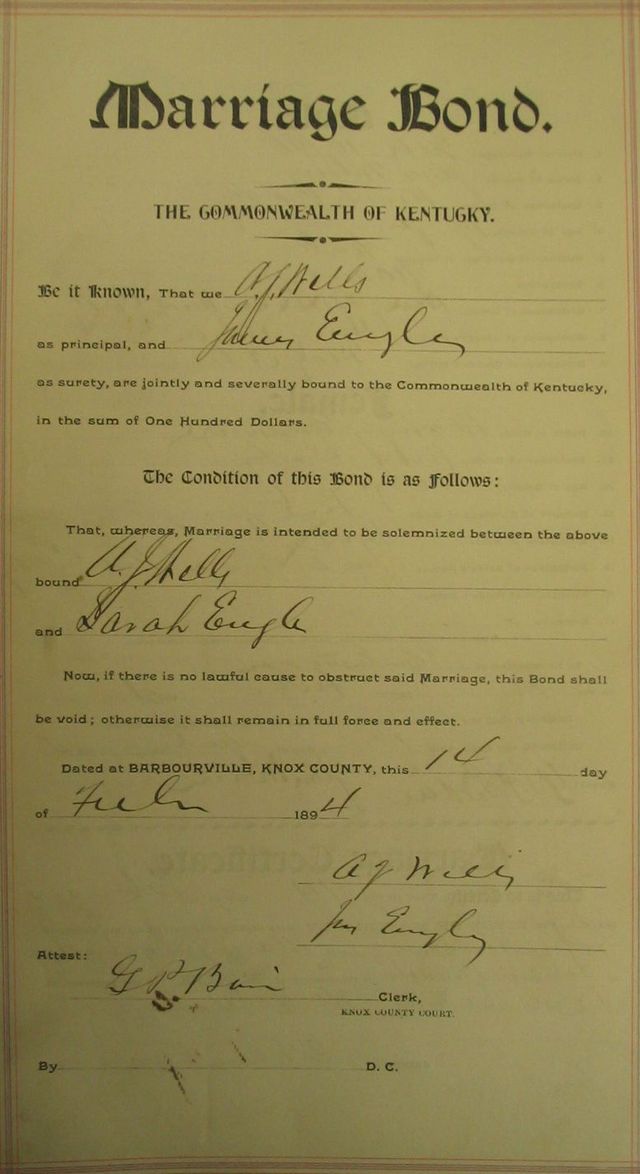 Marriage Bond.
THE COMMONWEALTH OF KENTUCKY.
Be it Known, That we A.J. Wells
as principal, and James Engle
as surety, are jointly and severally bound to the Commonwealth of Kentucky,
in the sum of One Hundred Dollars.
The Condition of this Bond is as Follows:
That, whereas, Marriage is intended to be solemnized between the above
bound A.J. Wells
and Sarah Engle
Now, if there is no lawful cause to obstruct said Marriage, this Bond shall
be void; otherwise it shall remain in full force and effect.
Dated at BARBOURVILLE, KNOX COUNTY, this 14 day
of 1894
A J Wells
Engle
Attest:
G P Bain
Clerk,
KNOX COUNTY COURT.
By D. C.